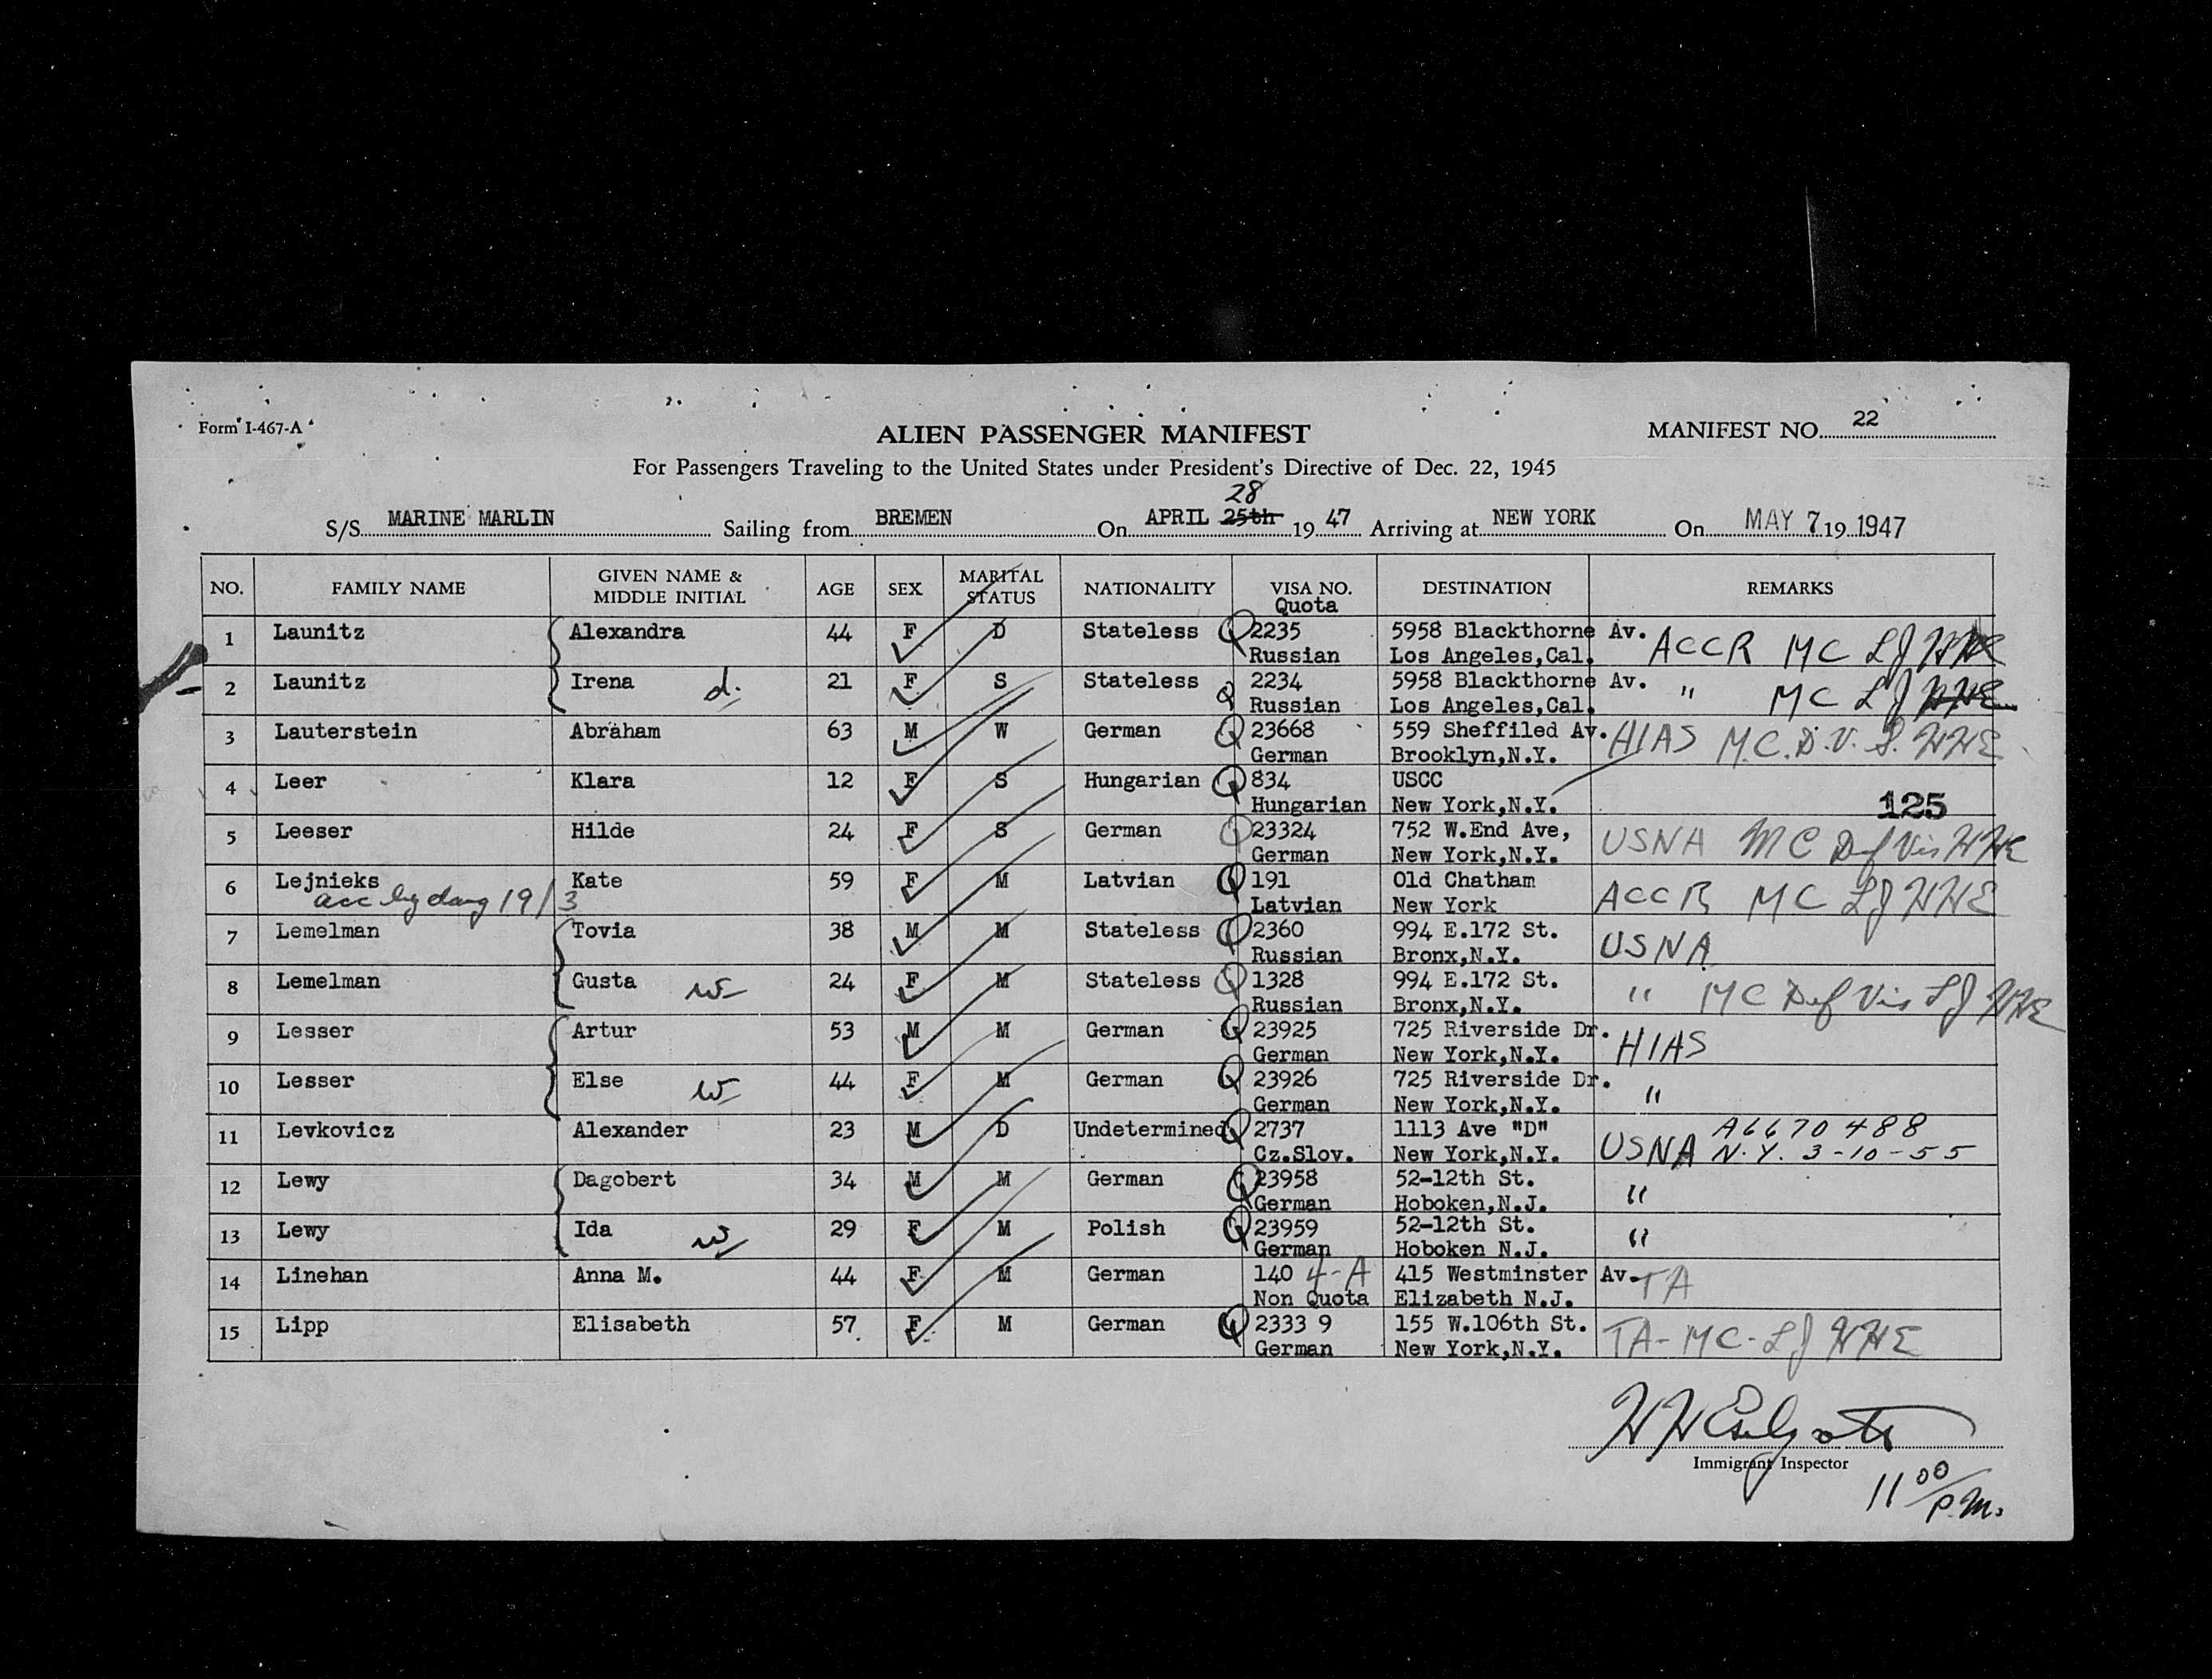 Form I-467-A
ALIEN PASSENGER MANIFEST
MANIFEST NO. 22
For Passengers Traveling to the United States under President's Directive of Dec. 22, 1945
28
S/S MARINE MARLIN Sailing from BREMEN On APRIL 25th 19 47 Arriving at NEW YORK On MAY 7 19 1947
NO. FAMILY NAME GIVEN NAME & MIDDLE INITIAL AGE SEX MARITAL STATUS NATIONALITY VISA NO. Quota DESTINATION REMARKS
1 Launitz Alexandra 44 F D Stateless Q 2235 5958 Blackthorne Av. ACCR MC LJ HHE
Russian Los Angeles,Cal.
2 Launitz Irena d. 21 F S Stateless Q 2234 5958 Blackthorne Av. " MC LJ HHE
Russian Los Angeles,Cal.
3 Lauterstein Abraham 63 M W German Q 23668 559 Sheffiled Av. HIAS M.C. D.V. S. HHE
German Brooklyn,N.Y.
4 Leer Klara 12 F S Hungarian Q 834 USCC
Hungarian New York,N.Y. 125
5 Leeser Hilde 24 F S German Q 23324 752 W.End Ave, USNA MC Def Vis HHE
German New York,N.Y.
6 Lejnieks Kate 59 F M Latvian Q 191 Old Chatham ACCR MC LJ HHE
acc by daug 19/3 Latvian New York
7 Lemelman Tovia 38 M M Stateless Q 2360 994 E.172 St. USNA
Russian Bronx,N.Y.
8 Lemelman Gusta w 24 F M Stateless Q 1328 994 E.172 St. " MC Def Vis LJ HHE
Russian Bronx,N.Y.
9 Lesser Artur 53 M M German Q 23925 725 Riverside Dr. HIAS
German New York,N.Y.
10 Lesser Else w 44 F M German Q 23926 725 Riverside Dr. "
German New York,N.Y.
11 Levkovicz Alexander 23 M D Undetermined Q 2737 1113 Ave "D" USNA A6670488
Cz.Slov. New York,N.Y. N.Y. 3-10-55
12 Lewy Dagobert 34 M M German Q 23958 52-12th St. "
German Hoboken,N.J.
13 Lewy Ida w 29 F M Polish Q 23959 52-12th St. "
German Hoboken N.J.
14 Linehan Anna M. 44 F M German 140 4-A 415 Westminster Av. TA
Non Quota Elizabeth N.J.
15 Lipp Elisabeth 57 F M German Q 2333 9 155 W.106th St. TA-MC-LJ HHE
German New York,N.Y.
Immigrant Inspector
11 00/P.M.